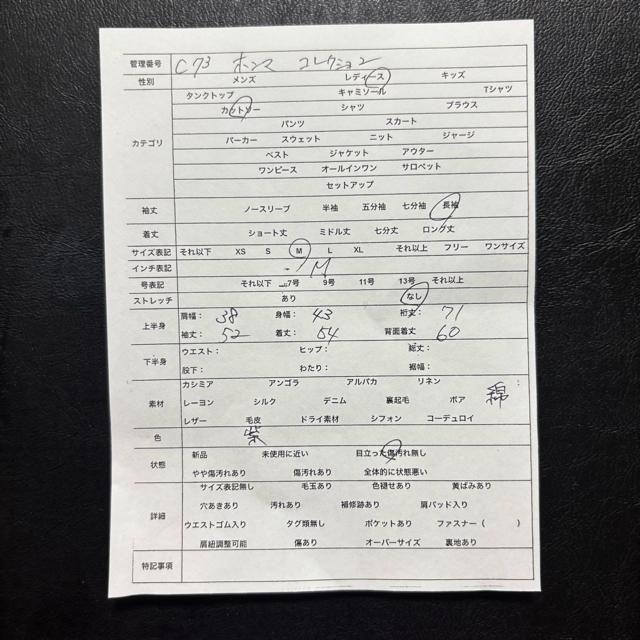 管理番号 C73 ホンマ コレクション
性別 メンズ レディース キッズ
タンクトップ キャミソール Tシャツ
カットソー シャツ ブラウス
パンツ スカート
カテゴリ パーカー スウェット ニット ジャージ
ベスト ジャケット アウター
ワンピース オールインワン サロペット
セットアップ
袖丈 ノースリーブ 半袖 五分袖 七分袖 長袖
着丈 ショート丈 ミドル丈 七分丈 ロング丈
サイズ表記 それ以下 XS S M L XL それ以上 フリー ワンサイズ
インチ表記 M
号表記 それ以下 7号 9号 11号 13号 それ以上
ストレッチ あり なし
上半身 肩幅: 38 身幅: 43 裄丈: 71
袖丈: 52 着丈: 54 背面着丈 60
下半身 ウエスト: ヒップ: 総丈:
股下: わたり: 裾幅:
カシミア アンゴラ アルパカ リネン
素材 レーヨン シルク デニム 裏起毛 ボア 綿
レザー 毛皮 ドライ素材 シフォン コーデュロイ
色 紫
状態 新品 未使用に近い 目立った傷汚れ無し
やや傷汚れあり 傷汚れあり 全体的に状態悪い
サイズ表記無し 毛玉あり 色褪せあり 黄ばみあり
詳細 穴あきあり 汚れあり 補修跡あり 肩パッド入り
ウエストゴム入り タグ類無し ポケットあり ファスナー( )
肩紐調整可能 傷あり オーバーサイズ 裏地あり
特記事項